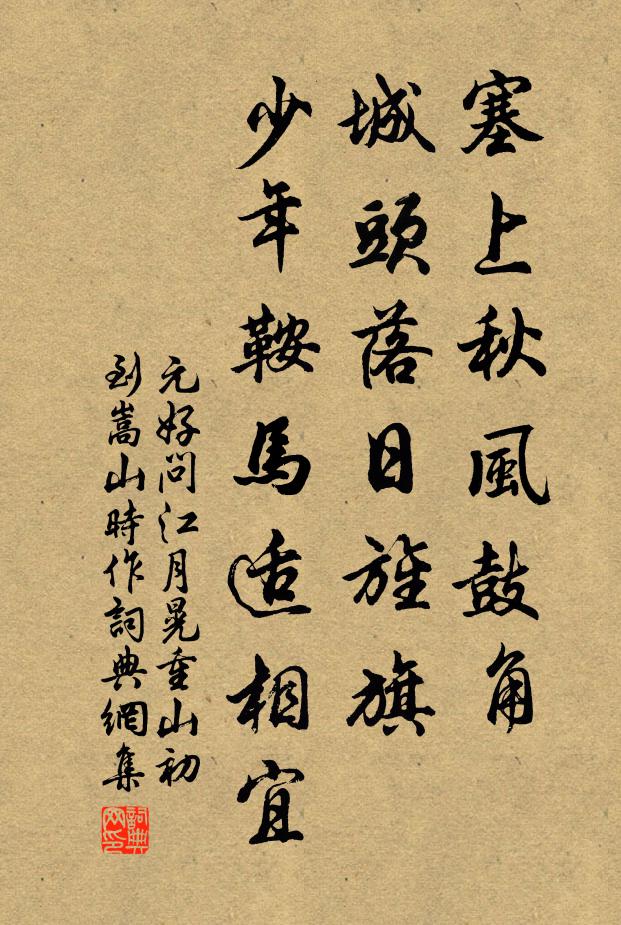 塞上秋風鼓角
城頭落日旌旗
少年鞍馬适相宜
元好問江月晃重山初
到嵩山時作詞典網集
詞典
网印